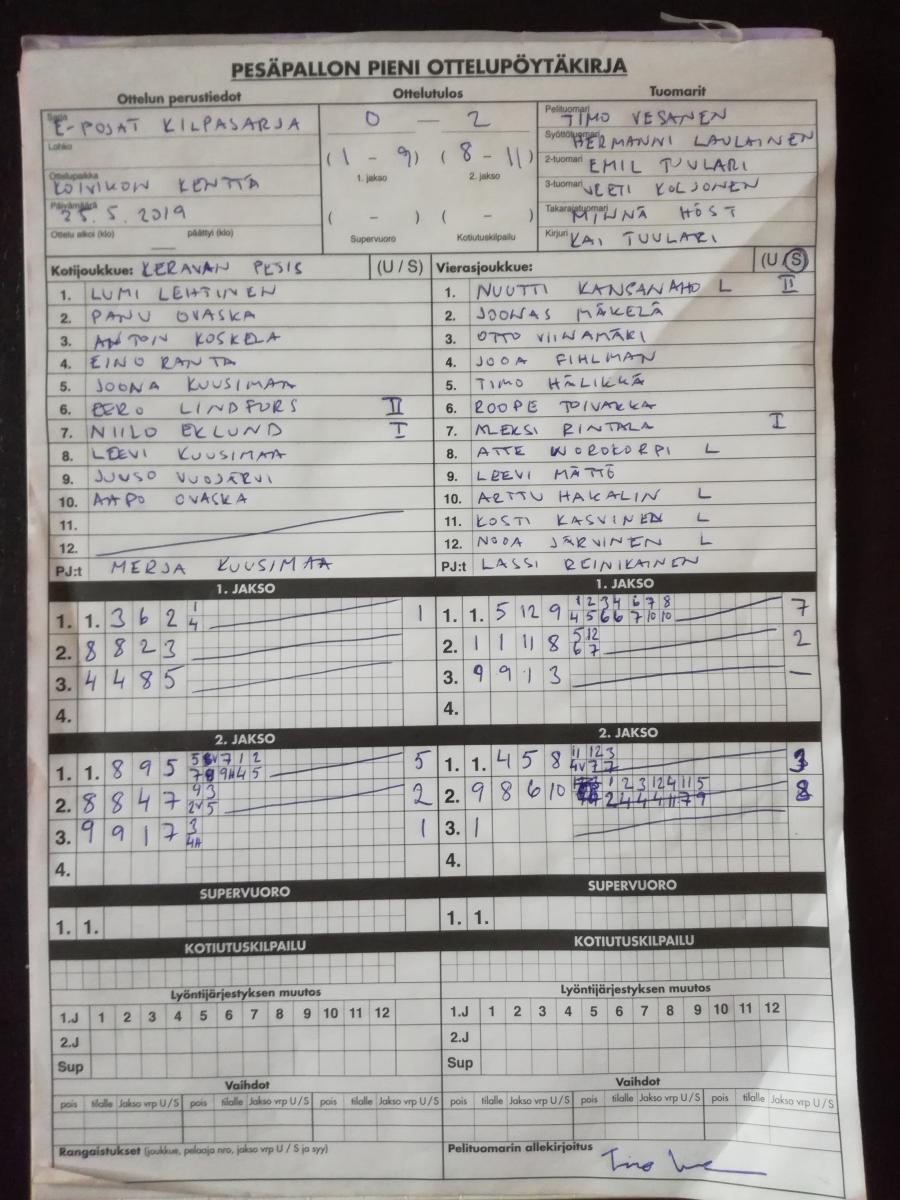 PESÄPALLON PIENI OTTELUPÖYTÄKIRJA
Ottelun perustiedot
Sarja E-POJAT KILPASARJA
Lohko
Ottelupaikka KOIVIKON KENTTÄ
Päivämäärä 25.5.2019
Ottelu alkoi (klo) päättyi (klo)
Ottelutulos
0 — 2
(1 - 9) (8 - 11)
1. jakso 2. jakso
( - ) ( - )
Supervuoro Kotiutuskilpailu
Tuomarit
Pelituomari TIMO VESANEN
Syöttötuomari HERMANNI LAULAINEN
2-tuomari EMIL TUULARI
3-tuomari VEETI KOLJONEN
Takarajatuomari MINNA HÖST
Kirjuri KAI TUULARI
Kotijoukkue: KERAVAN PESIS (U / S)
1. LUMI LEHTINEN
2. PANU OVASKA
3. ANTOIN KOSKELA
4. EINO RANTA
5. JOONA KUUSIMAA
6. EERO LINDFORS II
7. NIILO EKLUND I
8. LEEVI KUUSIMAA
9. JUUSO VUOJÄRVI
10. AAPO OVASKA
11.
12.
PJ:t MERJA KUUSIMAA
Vierasjoukkue: (U / S)
1. NUUTTI KANSANAHO L II
2. JOONAS MÄKELÄ
3. OTTO VIINAMÄKI
4. JOOA FIHLMAN
5. TIMO HÄLIKKÄ
6. ROOPE TOIVAKKA
7. ALEKSI RINTALA I
8. ATTE WOROKORPI L
9. LEEVI MÄTTÖ
10. ARTTU HAKALIN L
11. KOSTI KASVINEN L
12. NOOA JÄRVINEN L
PJ:t LASSI REINIKAINEN
1. JAKSO
1. 1. 3 6 2 1 4 1
2. 8 8 2 3
3. 4 4 8 5
4.
1. JAKSO
1. 1. 5 12 9 1 2 3 4 6 7 8 7
4 5 6 6 7 10 10
2. 1 1 11 8 5 12 2
6 7
3. 9 9 1 3 —
4.
2. JAKSO
1. 1. 8 9 5 5
2. 8 8 4 7 9 3 2
2V 5
3. 9 9 1 7 3 1
4H
4.
2. JAKSO
1. 1. 4 5 8 11 12 3 3
4V 7 7
2. 9 8 6 10 1 2 3 12 4 11 5 8
2 4 4 4 11 7 9
3. 1
4.
SUPERVUORO
1. 1.
SUPERVUORO
1. 1.
KOTIUTUSKILPAILU
KOTIUTUSKILPAILU
Lyöntijärjestyksen muutos
1.J 1 2 3 4 5 6 7 8 9 10 11 12
2.J
Sup
Lyöntijärjestyksen muutos
1.J 1 2 3 4 5 6 7 8 9 10 11 12
2.J
Sup
Vaihdot
pois tilalle Jakso vrp U / S pois tilalle Jakso vrp U / S pois tilalle Jakso vrp U / S
Vaihdot
pois tilalle Jakso vrp U / S pois tilalle Jakso vrp U / S pois tilalle Jakso vrp U / S
Rangaistukset (joukkue, pelaaja nro, jakso vrp U / S ja syy)
Pelituomarin allekirjoitus